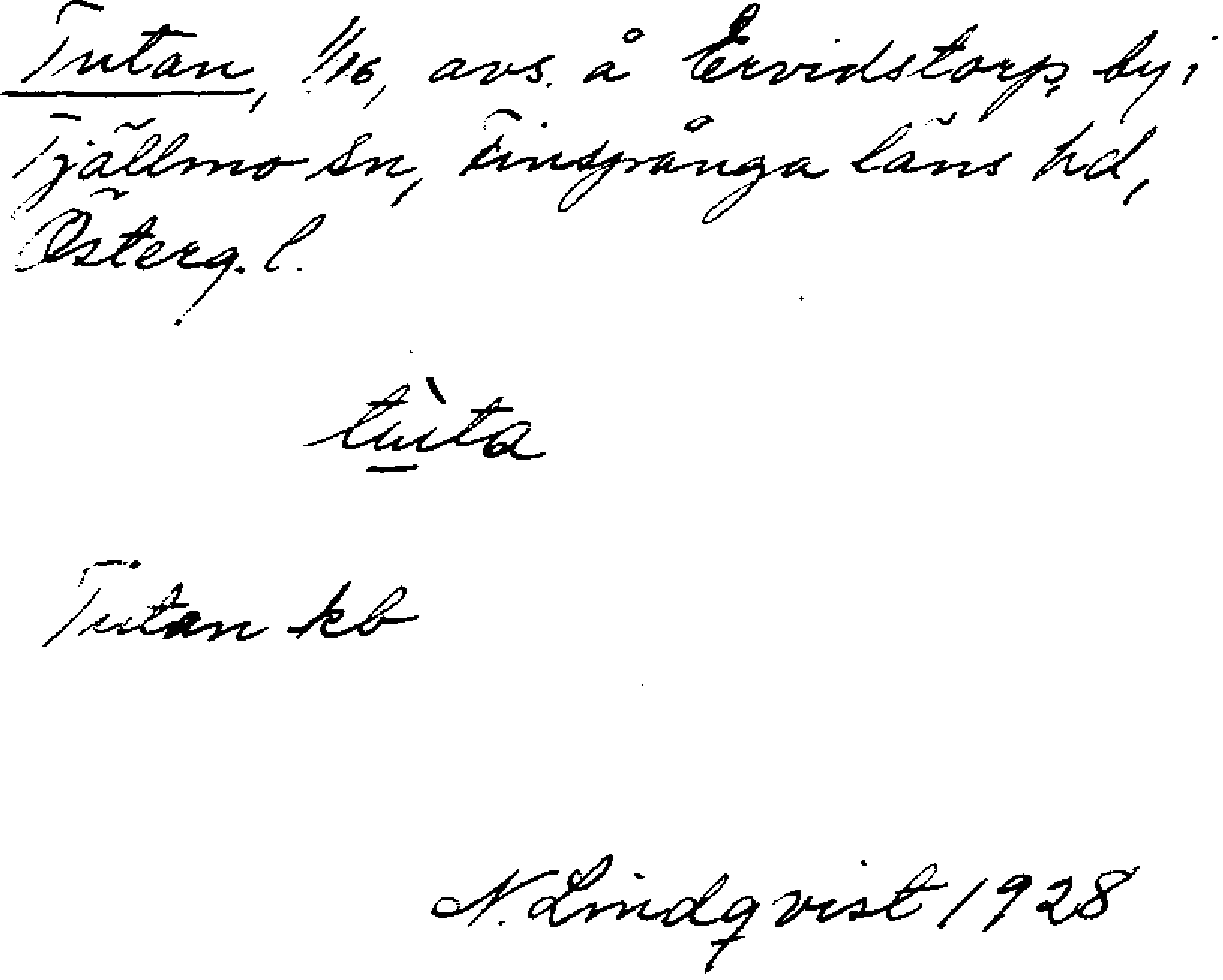 Tutan, 1/16, avs. å Ervidstorp, by i
Tjällmo sn, Finspånga läns hd,
Österg. l.
tùta
Tutan kb
N. Lindqvist 1928